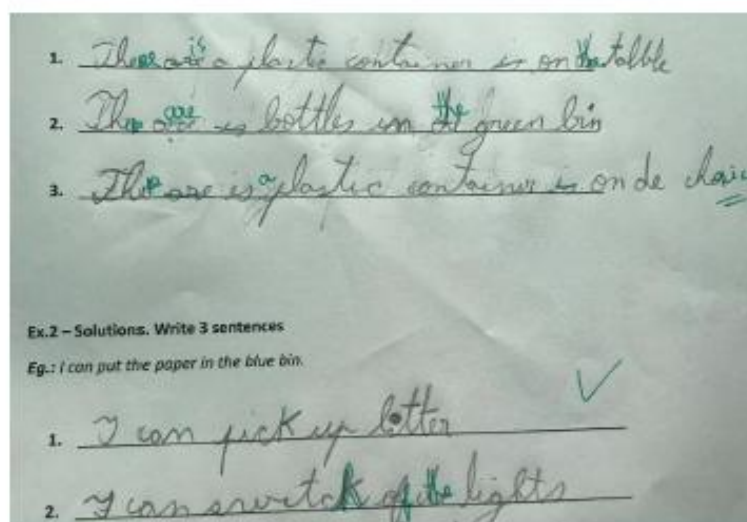 1. There are is a plastic container is on the talble
2. There are is bottles in the green bin
3. There are is a plastic container is on de chair
Ex.2 – Solutions. Write 3 sentences
Eg.: I can put the paper in the blue bin.
1. I can pick up litter
2. I can switch off the lights